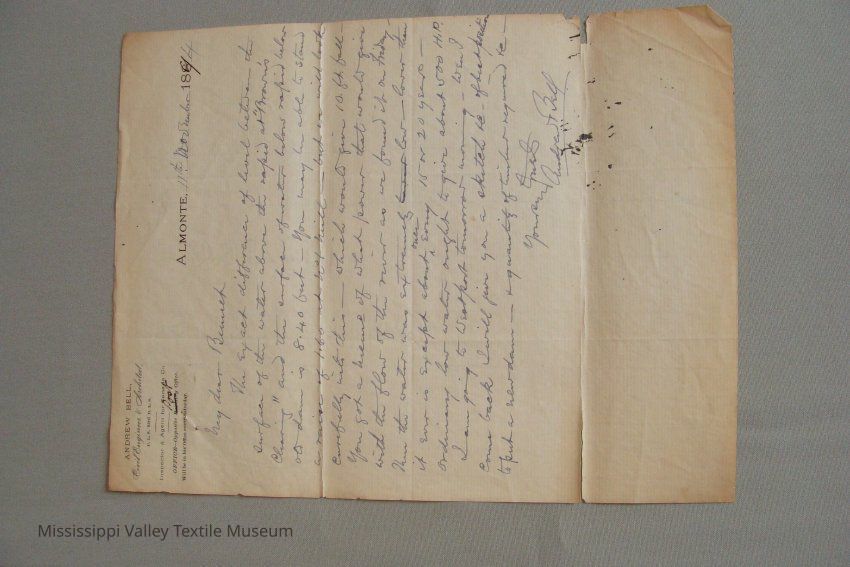 ANDREW BELL,
Civil Engineer & Architect,
Inspector & Agent for
OFFICE—Opposite Post Office
Will be in his Office every Saturday.
ALMONTE, 11th November 1894
My dear Bennett
The exact difference of level between the
surface of the water above the rapid at "Brown's
Clearing" and the surface of water below rapid below
old dam is 8.40 feet – You may be able to stand
a raise of 1.60 at Rosebank – but we will look
carefully into this – which would give 10 ft fall –
You got a of what power that would give
with the flow of the river as we found it on Friday –
Then the water was extremely low – lower than
it ever is except about once every 15 or 20 years –
Ordinary low water ought to give about 500 H.P.
I am going to Westport tomorrow morning – When I
come back I will give you a sketch &c of best position
to put a new dam – & quantity of timber required &c –
Yours truly
Andrew Bell
Mississippi Valley Textile Museum